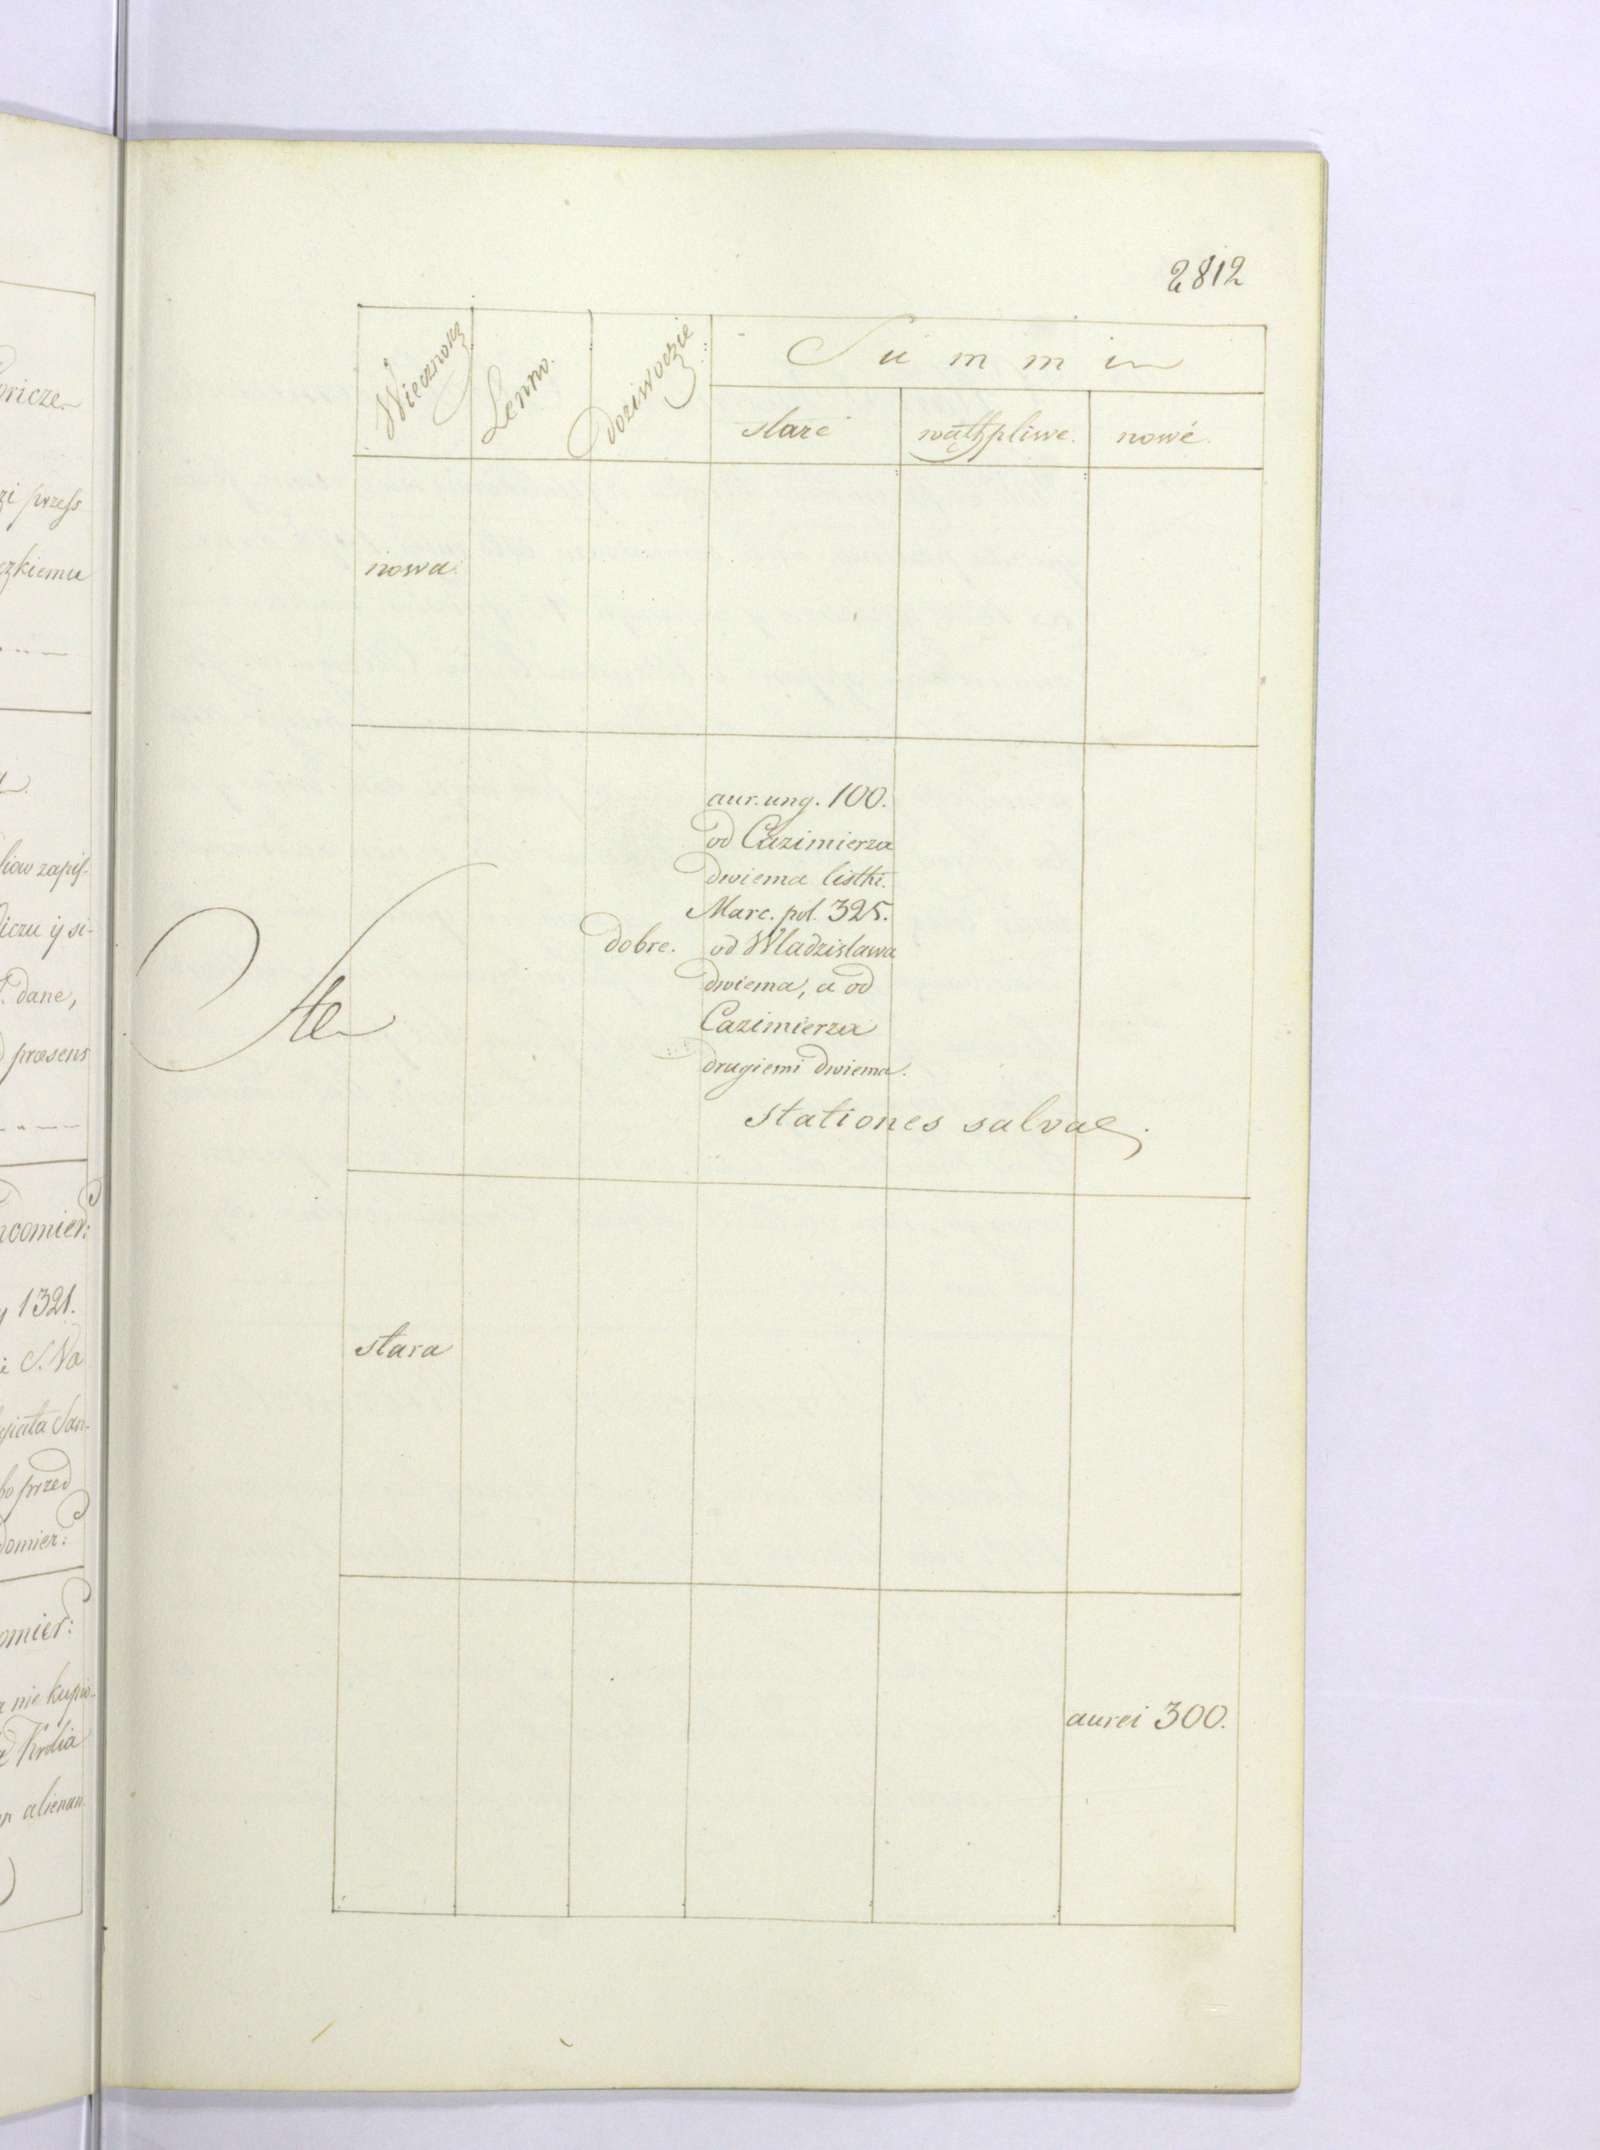 2812
Wiecznoscz
Lenno.
doziwoczie
Summ
staré
wathpliwe.
nowé.
nowa
aur. ung. 100.
od Cazimierza
dwiema listhi.
Marc. pol. 325.
dobre. od Wladzislawa
dwiema, a od
Cazimierza
drugiemi dwiema.
stationes salvae.
stara
aurei 300.
oricze
zi przess
czkiemu
now zapis-
iczu y si-
dane,
præsens
domier:
y 1321.
i S. Va
giata San-
bo przed
domier:
omier:
a nie kupio-
Krolia
alienan.